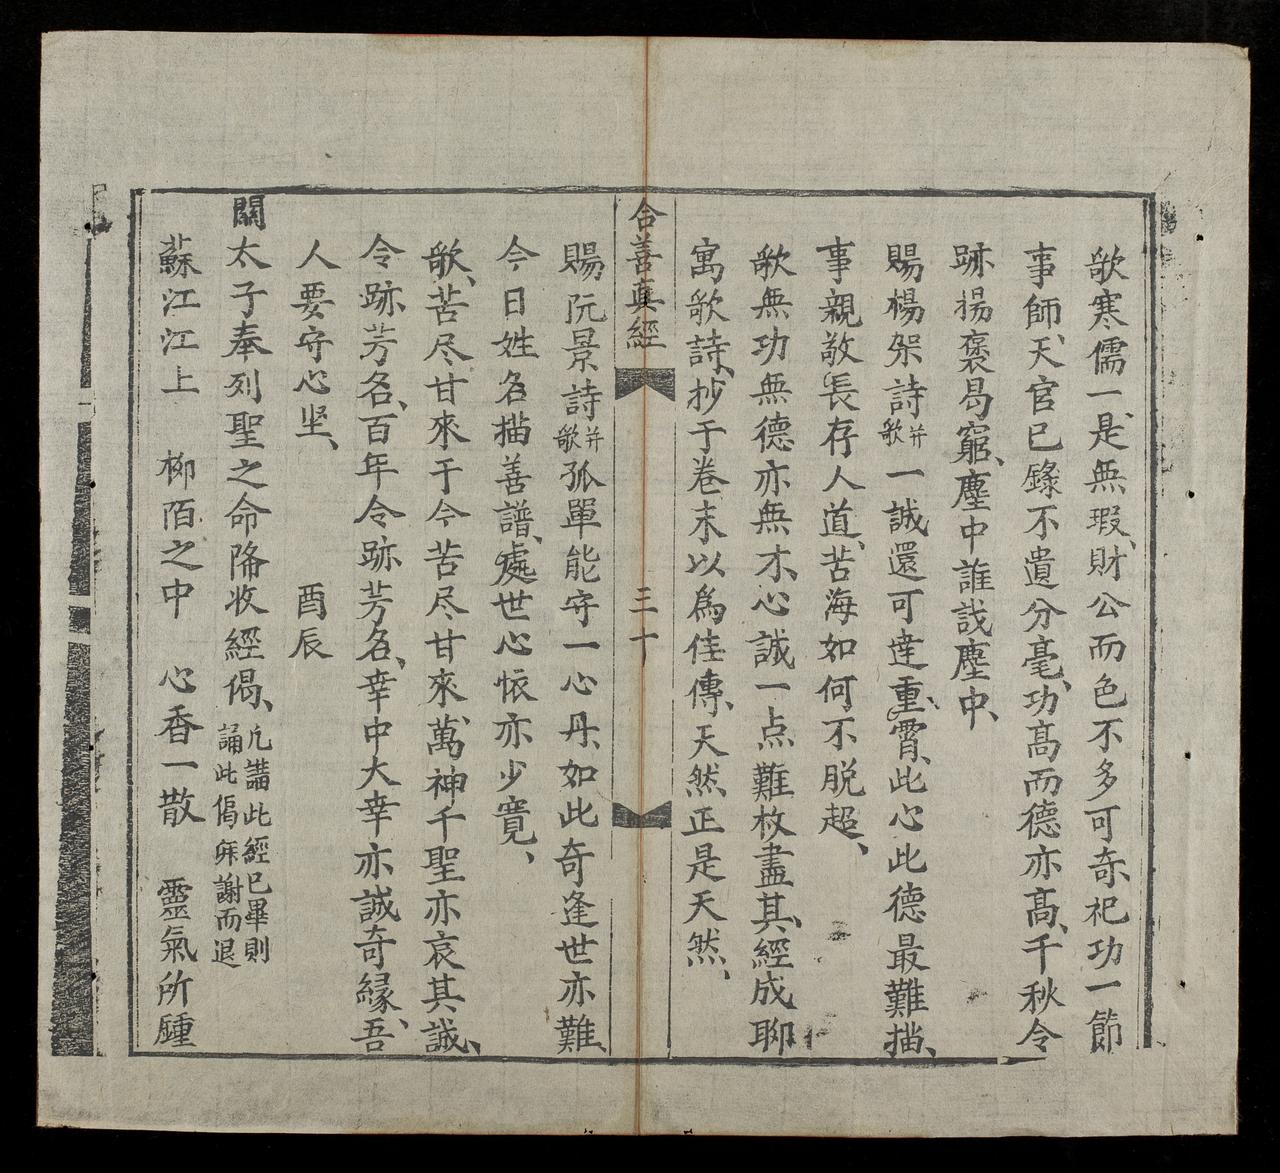 歌寒儒一是無瑕、財公而色不多可奇、祀功一節
事師、天官已錄不遺分毫、功高而德亦高、千秋令
跡揚褒曷窮、塵中誰識塵中、
賜楊架詩并歌一誠還可達重霄、此心此德最難描、
事親敬長存人道、苦海如何不脱超、
歌無功無德亦無才、心誠一点難枚盡其、經成聊
寓歌詩、抄于卷末以爲佳傳、天然正是天然、
合善真經
三十
賜阮景詩并歌孤單能守一心丹、如此奇逢世亦難、
今日姓名描善譜、處世心懷亦少寬、
歌、苦尽甘來于今苦尽甘來、萬神千聖亦哀其誠、
令跡芳名、百年令跡芳名、幸中大幸亦誠奇縁、吾
人要守心坚、　酉辰
關太子奉列聖之命降收經偈、凢誥此經已畢則誦此偈辭謝而退
蘇江江上　柳陌之中　心香一散　靈氣所鍾